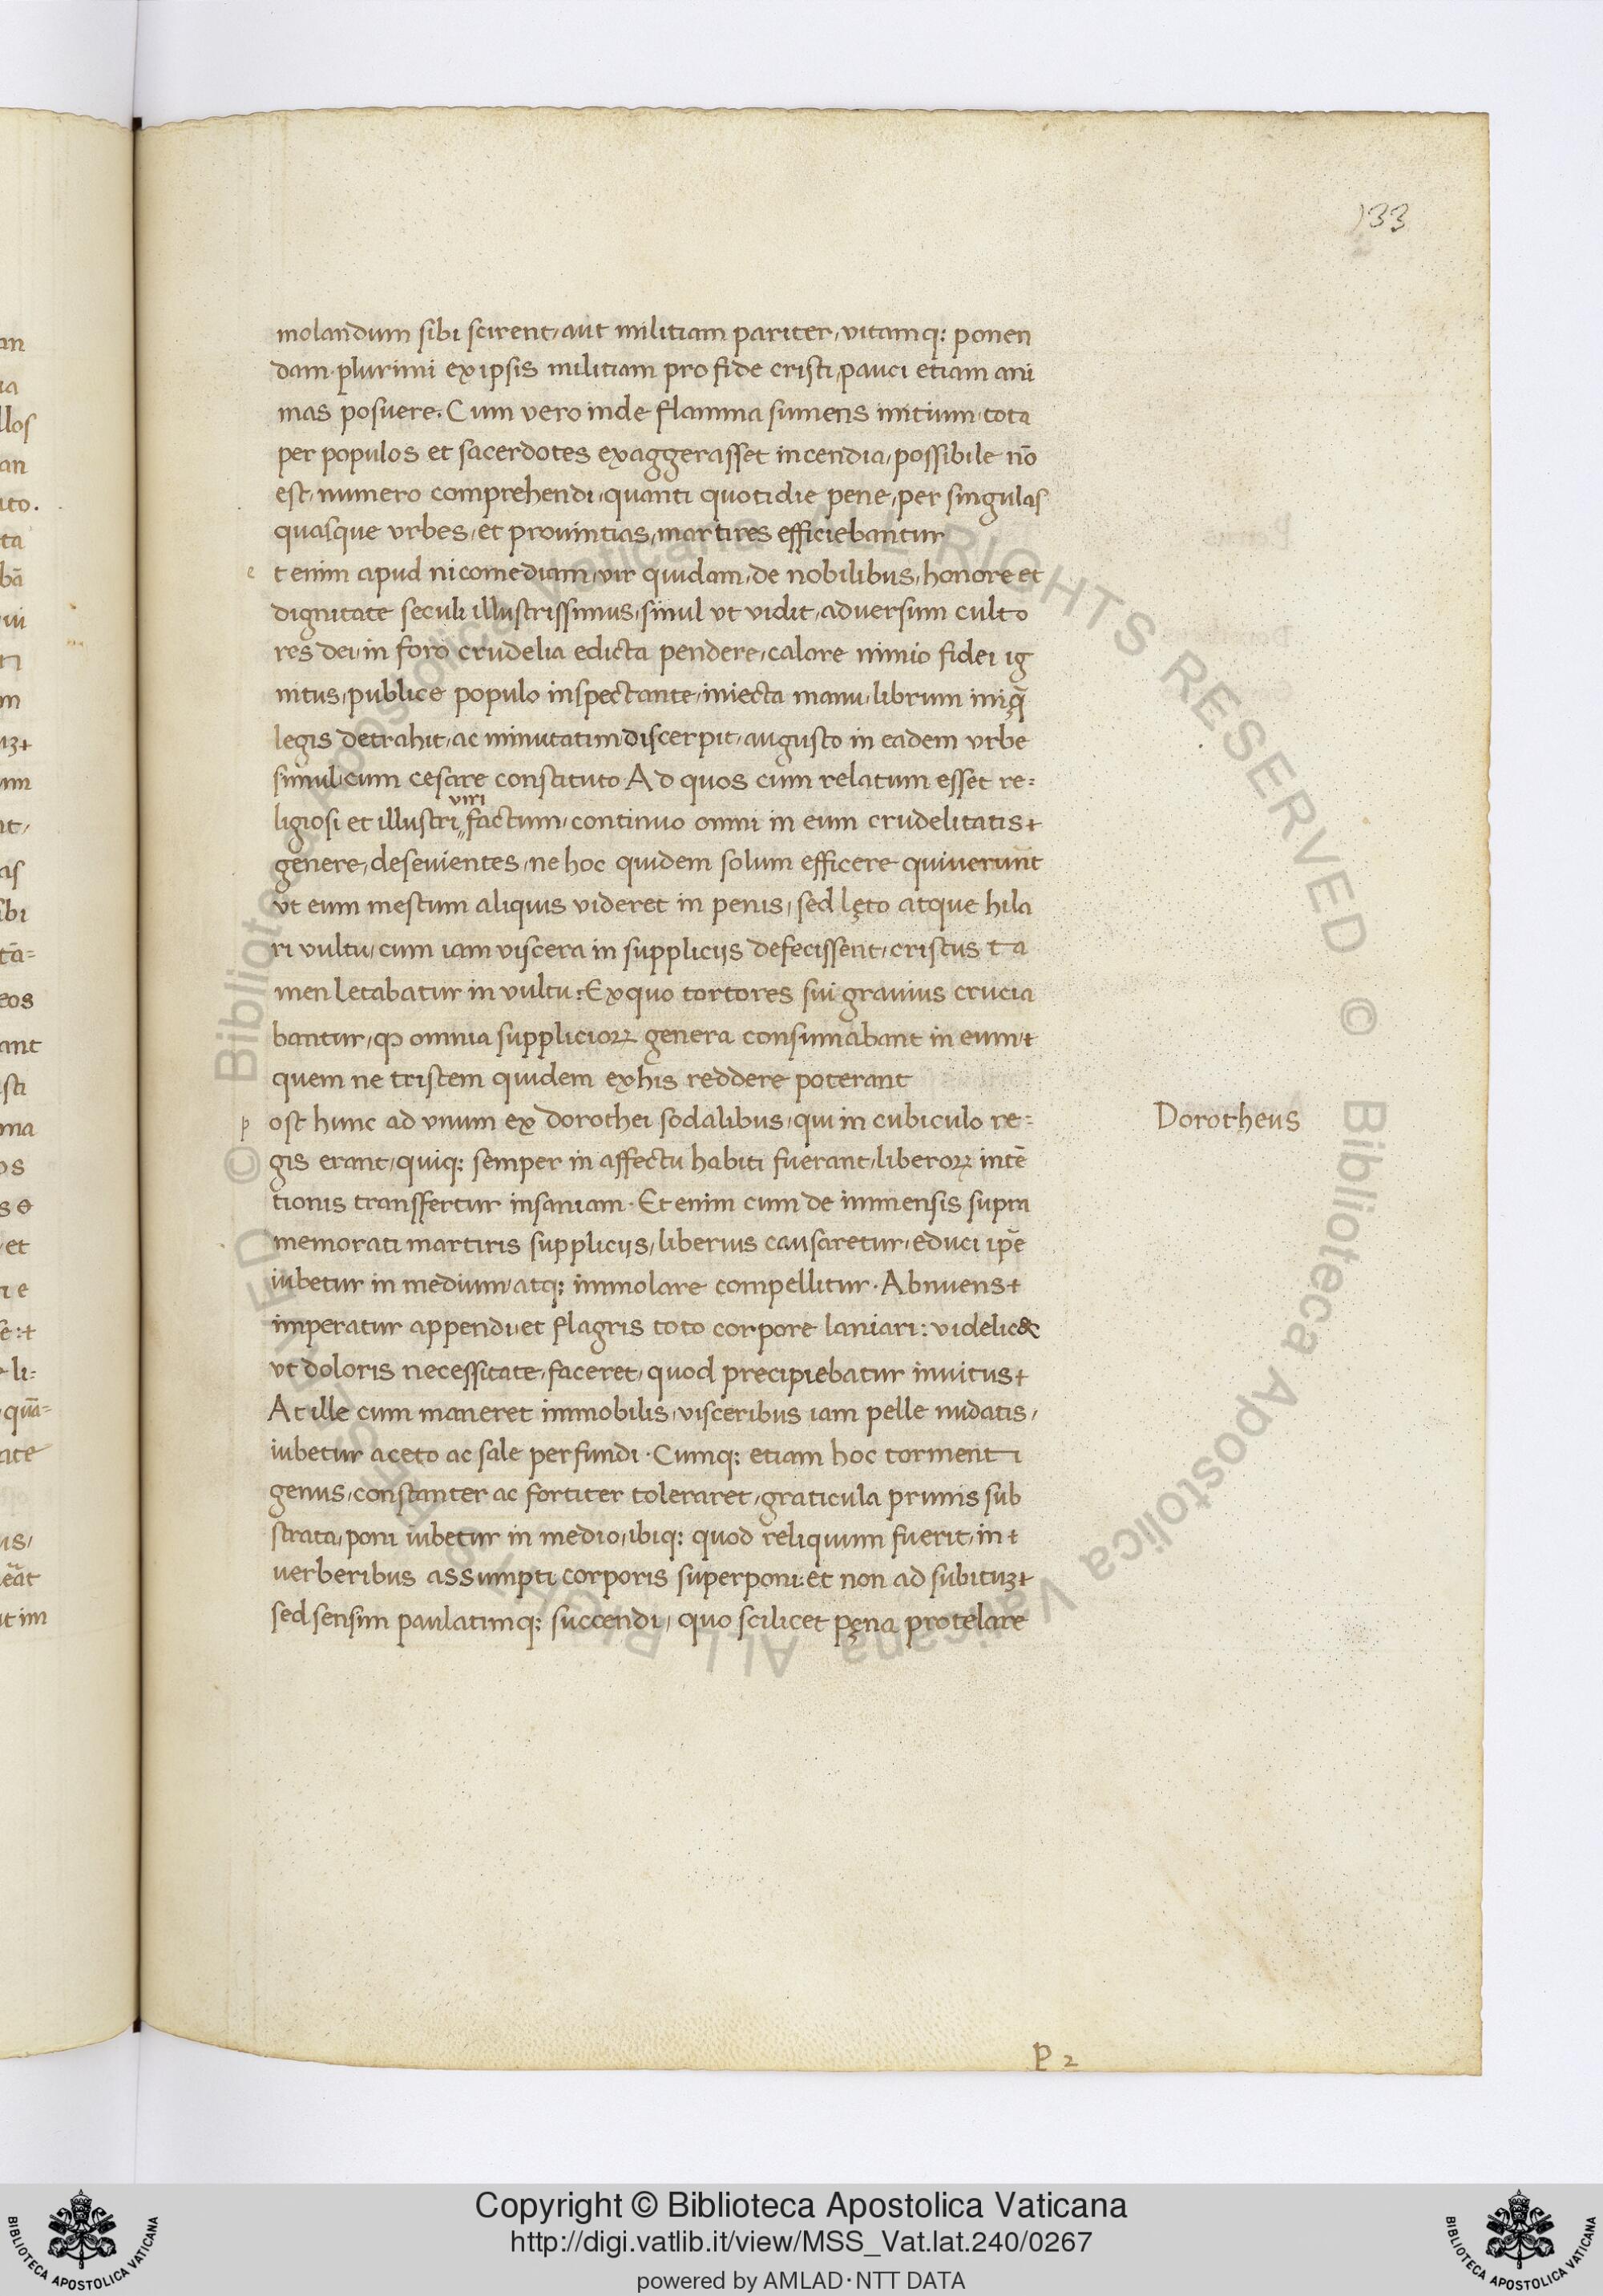 133
molandum sibi scirent, aut militiam pariter, vitamq; ponen
dam. plurimi ex ipsis militiam pro fide cristi, pauci etiam ani
mas posuere. Cum vero inde flamma sumens initium, tota
per populos et sacerdotes exaggerasset incendia, possibile nō
est, numero comprehendi, quanti quotidie pene, per singulas
quasque vrbes, et provintias, martires efficiebantur
e t enim apud nicomediam, vir quidam, de nobilibus, honore et
dignitate seculi illustrissimus, simul vt vidit, adversum culto
res dei, in foro crudelia edicta pendere, calore nimio fidei ig
nitus, publice populo inspectante, iniecta manu, librum iniq̄
legis detrahit, ac minutatim discerpit, augusto in eadem vrbe
simul cum cesare constituto Ad quos cum relatum esset re=
viri
ligiosi et illustri,, factum, continuo omni in eum crudelitatis+
genere, desevientes, ne hoc quidem solum efficere quiverunt
vt eum mestum aliquis videret in penis, sed lęto atque hila
ri vultu, cum iam viscera in suppliciis defecissent, cristus ta
men letabatur in vultu: Ex quo tortores sui gravius crucia
bantur, ꝙ omnia suppliciorꝝ genera consumabant in eum,+
quem ne tristem quidem ex his reddere poterant
p ost hunc ad vnum ex dorothei sodalibus, qui in cubiculo re=
Dorotheus
gis erant, quiq; semper in affectu habiti fuerant, liberorꝝ intē
tionis transfertur insaniam. Et enim cum de immensis supra
memorati martiris suppliciis, liberius causaretur, educi ip̄e
iubetur in medium, atq; immolare compellitur. Abnuens+
imperatur appendi, et flagris toto corpore laniari: videlic&
vt doloris necessitate, faceret, quod precipiebatur invitus+
At ille cum maneret immobilis, visceribus iam pelle nudatis,
iubetur aceto ac sale perfundi. Cumq; etiam hoc tormenti
genus, constanter ac fortiter toleraret, graticula prunis sub
strata, poni iubetur in medio, ibiq; quod reliquum fuerit, in+
verberibus assumpti corporis superponi. et non ad subituʒ+
sed sensim paulatimq; succendi, quo scilicet pęna protelare
P 2
Copyright © Biblioteca Apostolica Vaticana
http://digi.vatlib.it/view/MSS_Vat.lat.240/0267
powered by AMLAD·NTT DATA